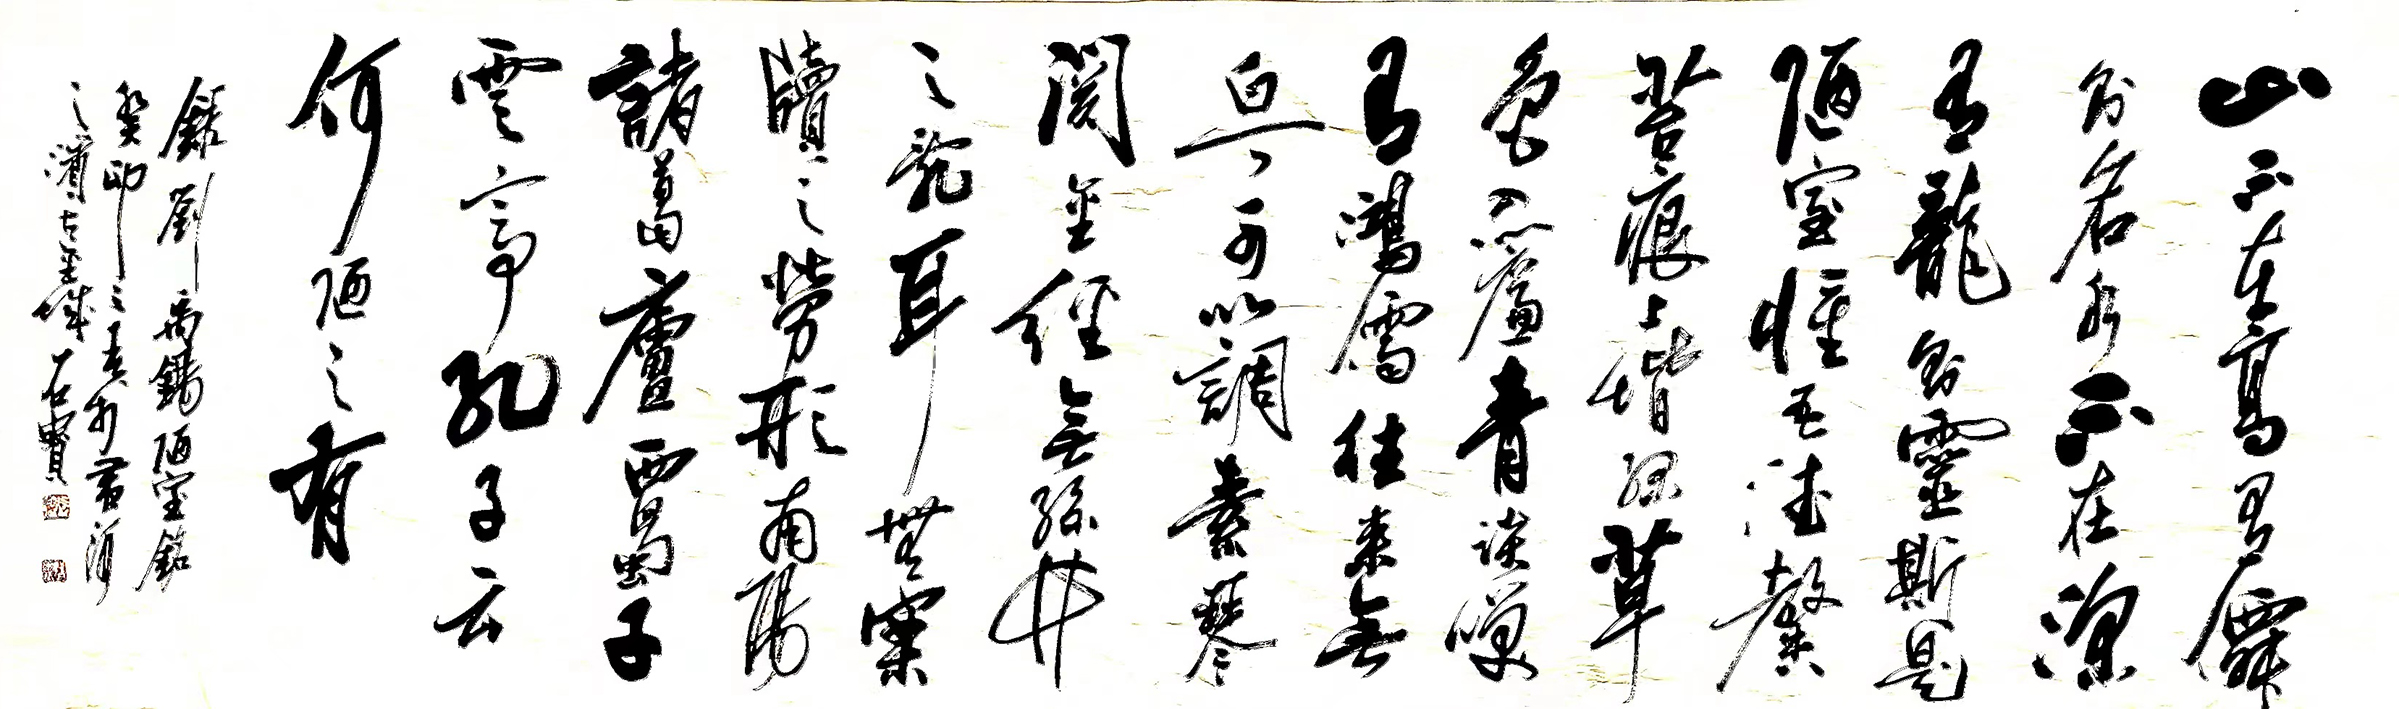 山不在高有僊
則名水不在深
有龍則靈斯是
陋室惟吾德馨
苔痕上階綠草
色入簾青談咲
有鴻儒往来無
白丁可以調素琴
閱金經無絲竹
之亂耳無案
牘之勞形南陽
諸葛廬西蜀子
雲亭孔子云
何陋之有
錄劉禹錫陋室銘
癸卯之春於黃海
之濱古鹽城石賢